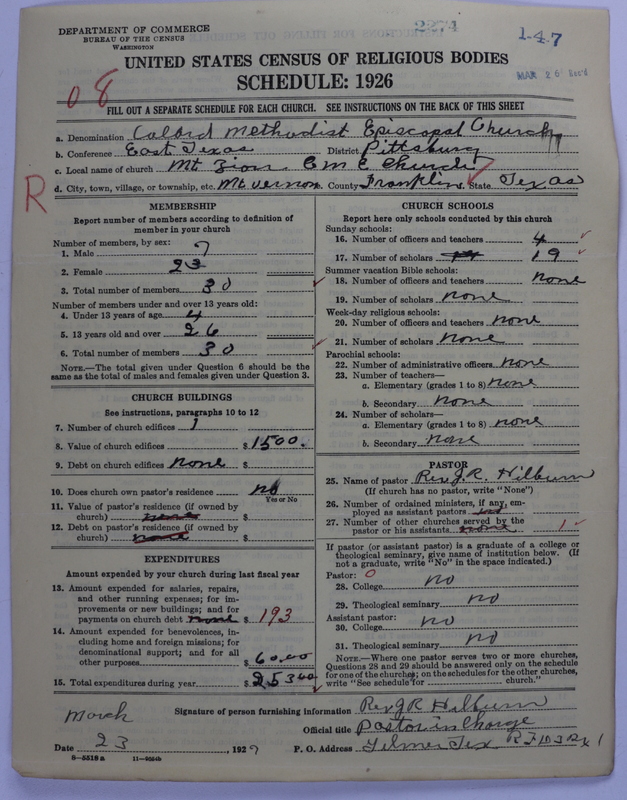 DEPARTMENT OF COMMERCE
BUREAU OF THE CENSUS
WASHINGTON
2274
1-4-7
MAR 26 Rec'd
UNITED STATES CENSUS OF RELIGIOUS BODIES
SCHEDULE: 1926
08
FILL OUT A SEPARATE SCHEDULE FOR EACH CHURCH. SEE INSTRUCTIONS ON THE BACK OF THIS SHEET
a. Denomination Colord Methodist Episcopal Church
b. Conference East Texas District Pittsburg
c. Local name of church Mt Zion C M E Church
R
d. City, town, village, or township, etc. Mt vernon County Franklin State Texas
MEMBERSHIP
Report number of members according to definition of
member in your church
Number of members, by sex:
1. Male 7
2. Female 23
3. Total number of members 30
Number of members under and over 13 years old:
4. Under 13 years of age 4
5. 13 years old and over 26
6. Total number of members 30
NOTE.—The total given under Question 6 should be the
same as the total of males and females given under Question 3.
CHURCH BUILDINGS
See instructions, paragraphs 10 to 12
7. Number of church edifices 1
8. Value of church edifices $1500.
9. Debt on church edifices none $
10. Does church own pastor's residence no
Yes or No
11. Value of pastor's residence (if owned by
church) none $
12. Debt on pastor's residence (if owned by
church) none $
EXPENDITURES
Amount expended by your church during last fiscal year
13. Amount expended for salaries, repairs,
and other running expenses; for im-
provements or new buildings; and for
payments on church debt none $ 193
14. Amount expended for benevolences, in-
cluding home and foreign missions; for
denominational support; and for all
other purposes $ 60.00
15. Total expenditures during year $ 253.00
CHURCH SCHOOLS
Report here only schools conducted by this church
Sunday schools:
16. Number of officers and teachers 4
17. Number of scholars 19
Summer vacation Bible schools:
18. Number of officers and teachers none
19. Number of scholars none
Week-day religious schools:
20. Number of officers and teachers none
21. Number of scholars none
Parochial schools:
22. Number of administrative officers none
23. Number of teachers—
a. Elementary (grades 1 to 8) none
b. Secondary none
24. Number of scholars—
a. Elementary (grades 1 to 8) none
b. Secondary none
PASTOR
25. Name of pastor Rev. J. R. Hilburn
(If church has no pastor, write "None")
26. Number of ordained ministers, if any, em-
ployed as assistant pastors
27. Number of other churches served by the
pastor or his assistants none 1
If pastor (or assistant pastor) is a graduate of a college or
theological seminary, give name of institution below. (If
not a graduate, write "No" in the space indicated.)
Pastor: 0
28. College no
29. Theological seminary no
Assistant pastor:
30. College no
31. Theological seminary no
NOTE.—Where one pastor serves two or more churches,
Questions 28 and 29 should be answered only on the schedule
for one of the churches; on the schedules for the other churches,
write "See schedule for church."
Signature of person furnishing information Rev J R Hilburn
Official title Pastor in Charge
March
Date 23, 1927 P. O. Address Gilmer Tex R F D 3 Bx 1
8—5518 a 11—9554b